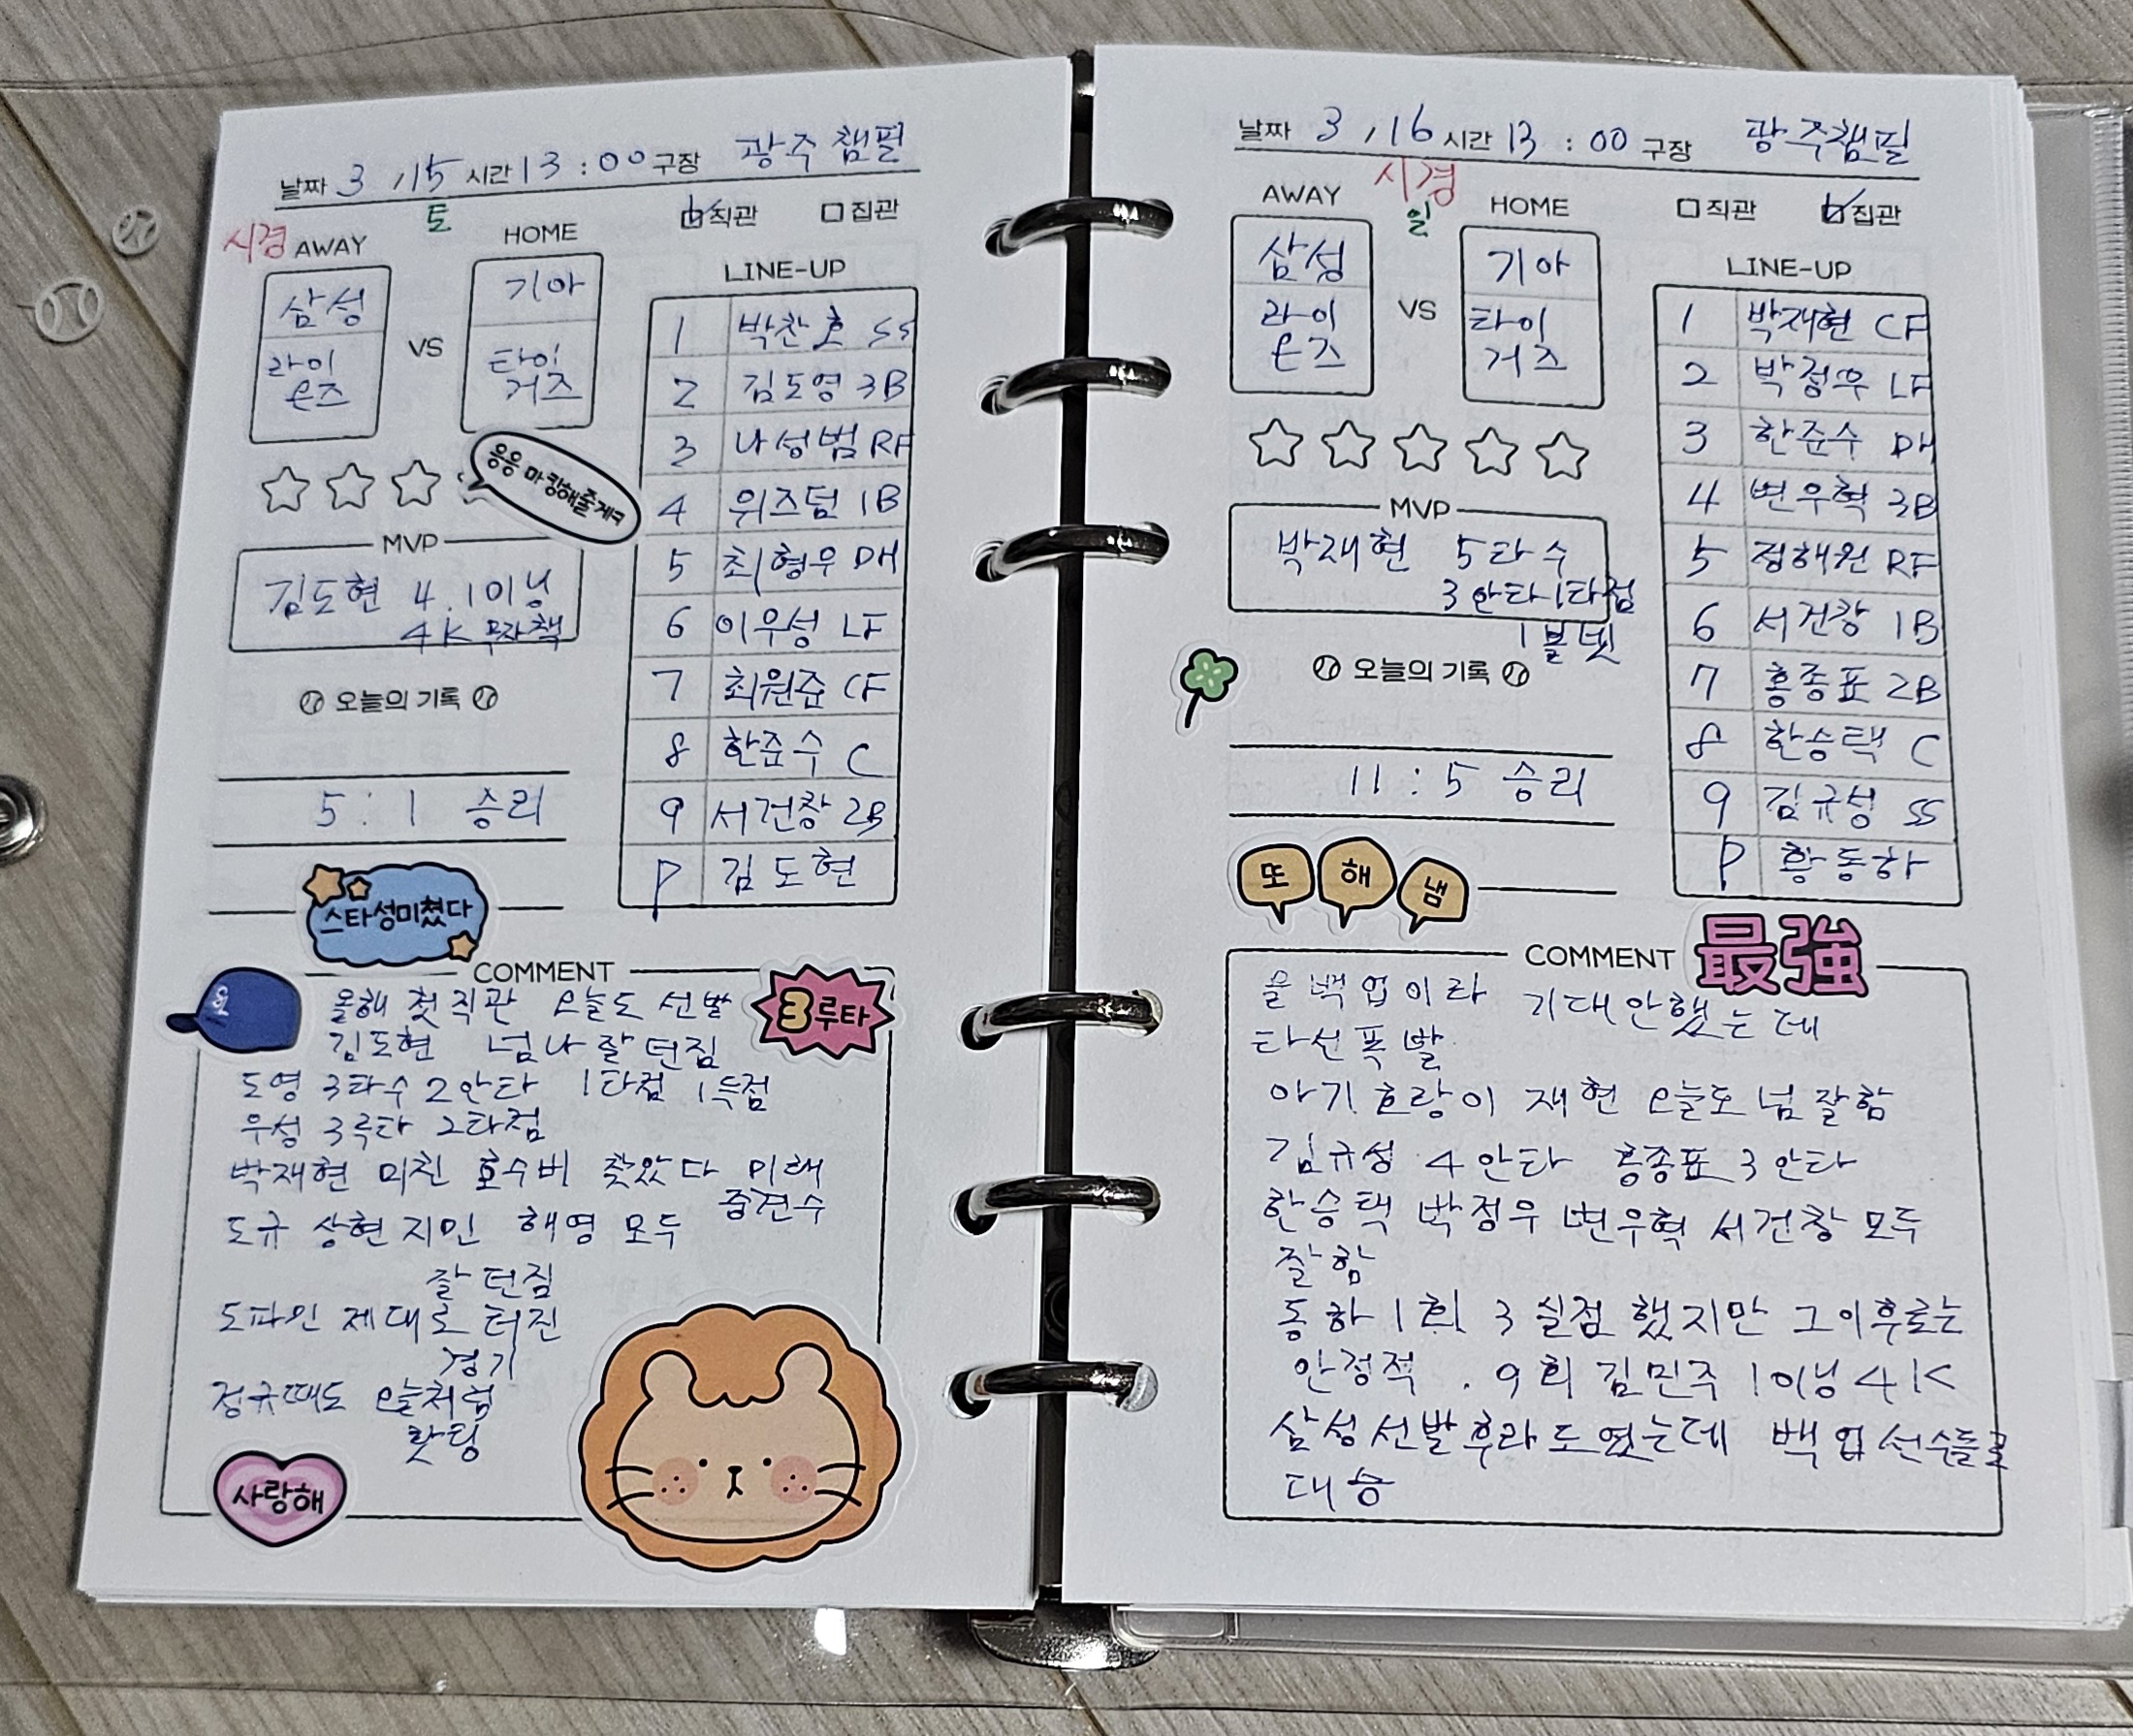 날짜 3 / 15 시간 13 : 00 구장 광주챔필
토
직관 집관
시경 AWAY
HOME
삼성
라이온즈
VS
기아
타이거즈
LINE-UP
1 박찬호 SS
2 김도영 3B
3 나성범 RF
4 위즈덤 1B
5 최형우 DH
6 이우성 LF
7 최원준 CF
8 한준수 C
9 서건창 2B
P 김도현
응응 마킹해줄게ㅋ
MVP
김도현 4.1이닝
4K 무자책
오늘의 기록
5 : 1 승리
스타성미쳤다
COMMENT
3루타
올해 첫 직관 오늘도 선발
김도현 넘나 잘 던짐
도영 3타수 2안타 1타점 1득점
우성 3루타 2타점
박재현 미친 호수비 찾았다 미래
중견수
도규 상현 지민 해영 모두
잘 던짐
도파민 제대로 터진
경기
정규때도 오늘처럼
핫팅
사랑해
날짜 3 / 16 시간 13 : 00 구장 광주챔필
시경
일
직관 집관
AWAY
HOME
삼성
라이
온즈
VS
기아
타이
거즈
LINE-UP
1 박재현 CF
2 박정우 LF
3 한준수 DH
4 변우혁 3B
5 정해원 RF
6 서건창 1B
7 홍종표 2B
8 한승택 C
9 김규성 SS
P 황동하
MVP
박재현 5타수
3안타 1타점
1볼넷
오늘의 기록
11 : 5 승리
또 해 냄
COMMENT
最強
올 백업이라 기대안했는데
타선폭발
아기호랑이 재현 오늘도 넘 잘함
김규성 4안타 홍종표 3안타
한승택 박정우 변우혁 서건창 모두
잘함
동하 1회 3실점 했지만 그이후로는
안정적 . 9회 김민주 1이닝 4K
삼성선발 후라도였는데 백업선수들로
대승